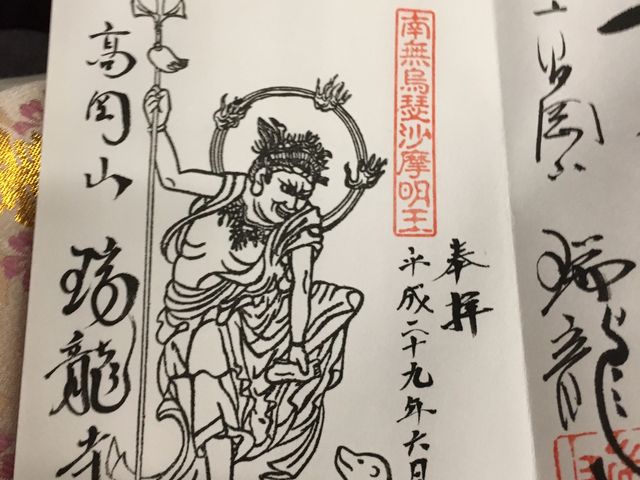 南無烏瑟沙摩明王
奉拝
平成二十九年六月
高岡山
瑞龍寺
高岡山
瑞龍